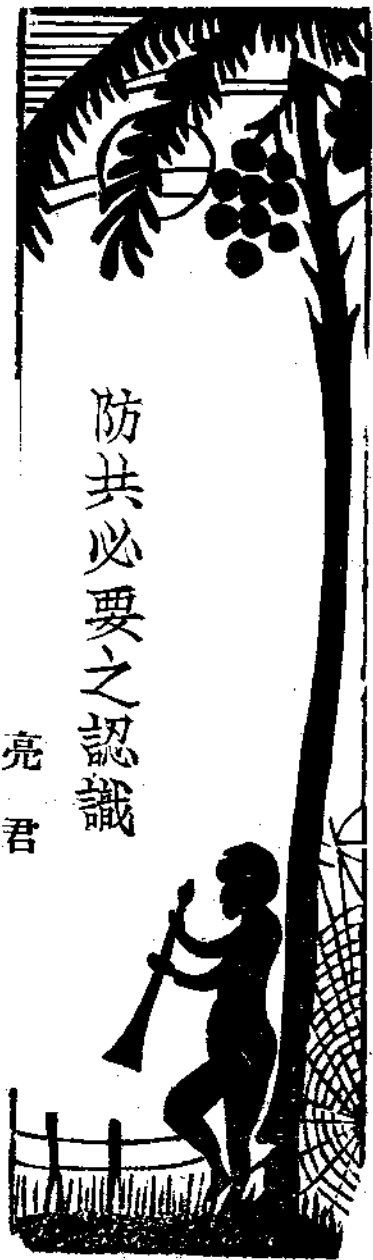 防共必要之認識
亮君